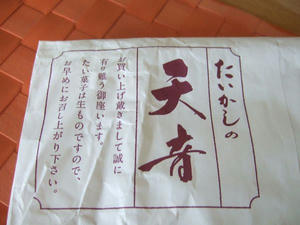 たいかしの
天音
お買い上げ戴きまして誠に
有り難う御座います。
たい菓子は生ものですので、
お早めにお召し上がり下さい。